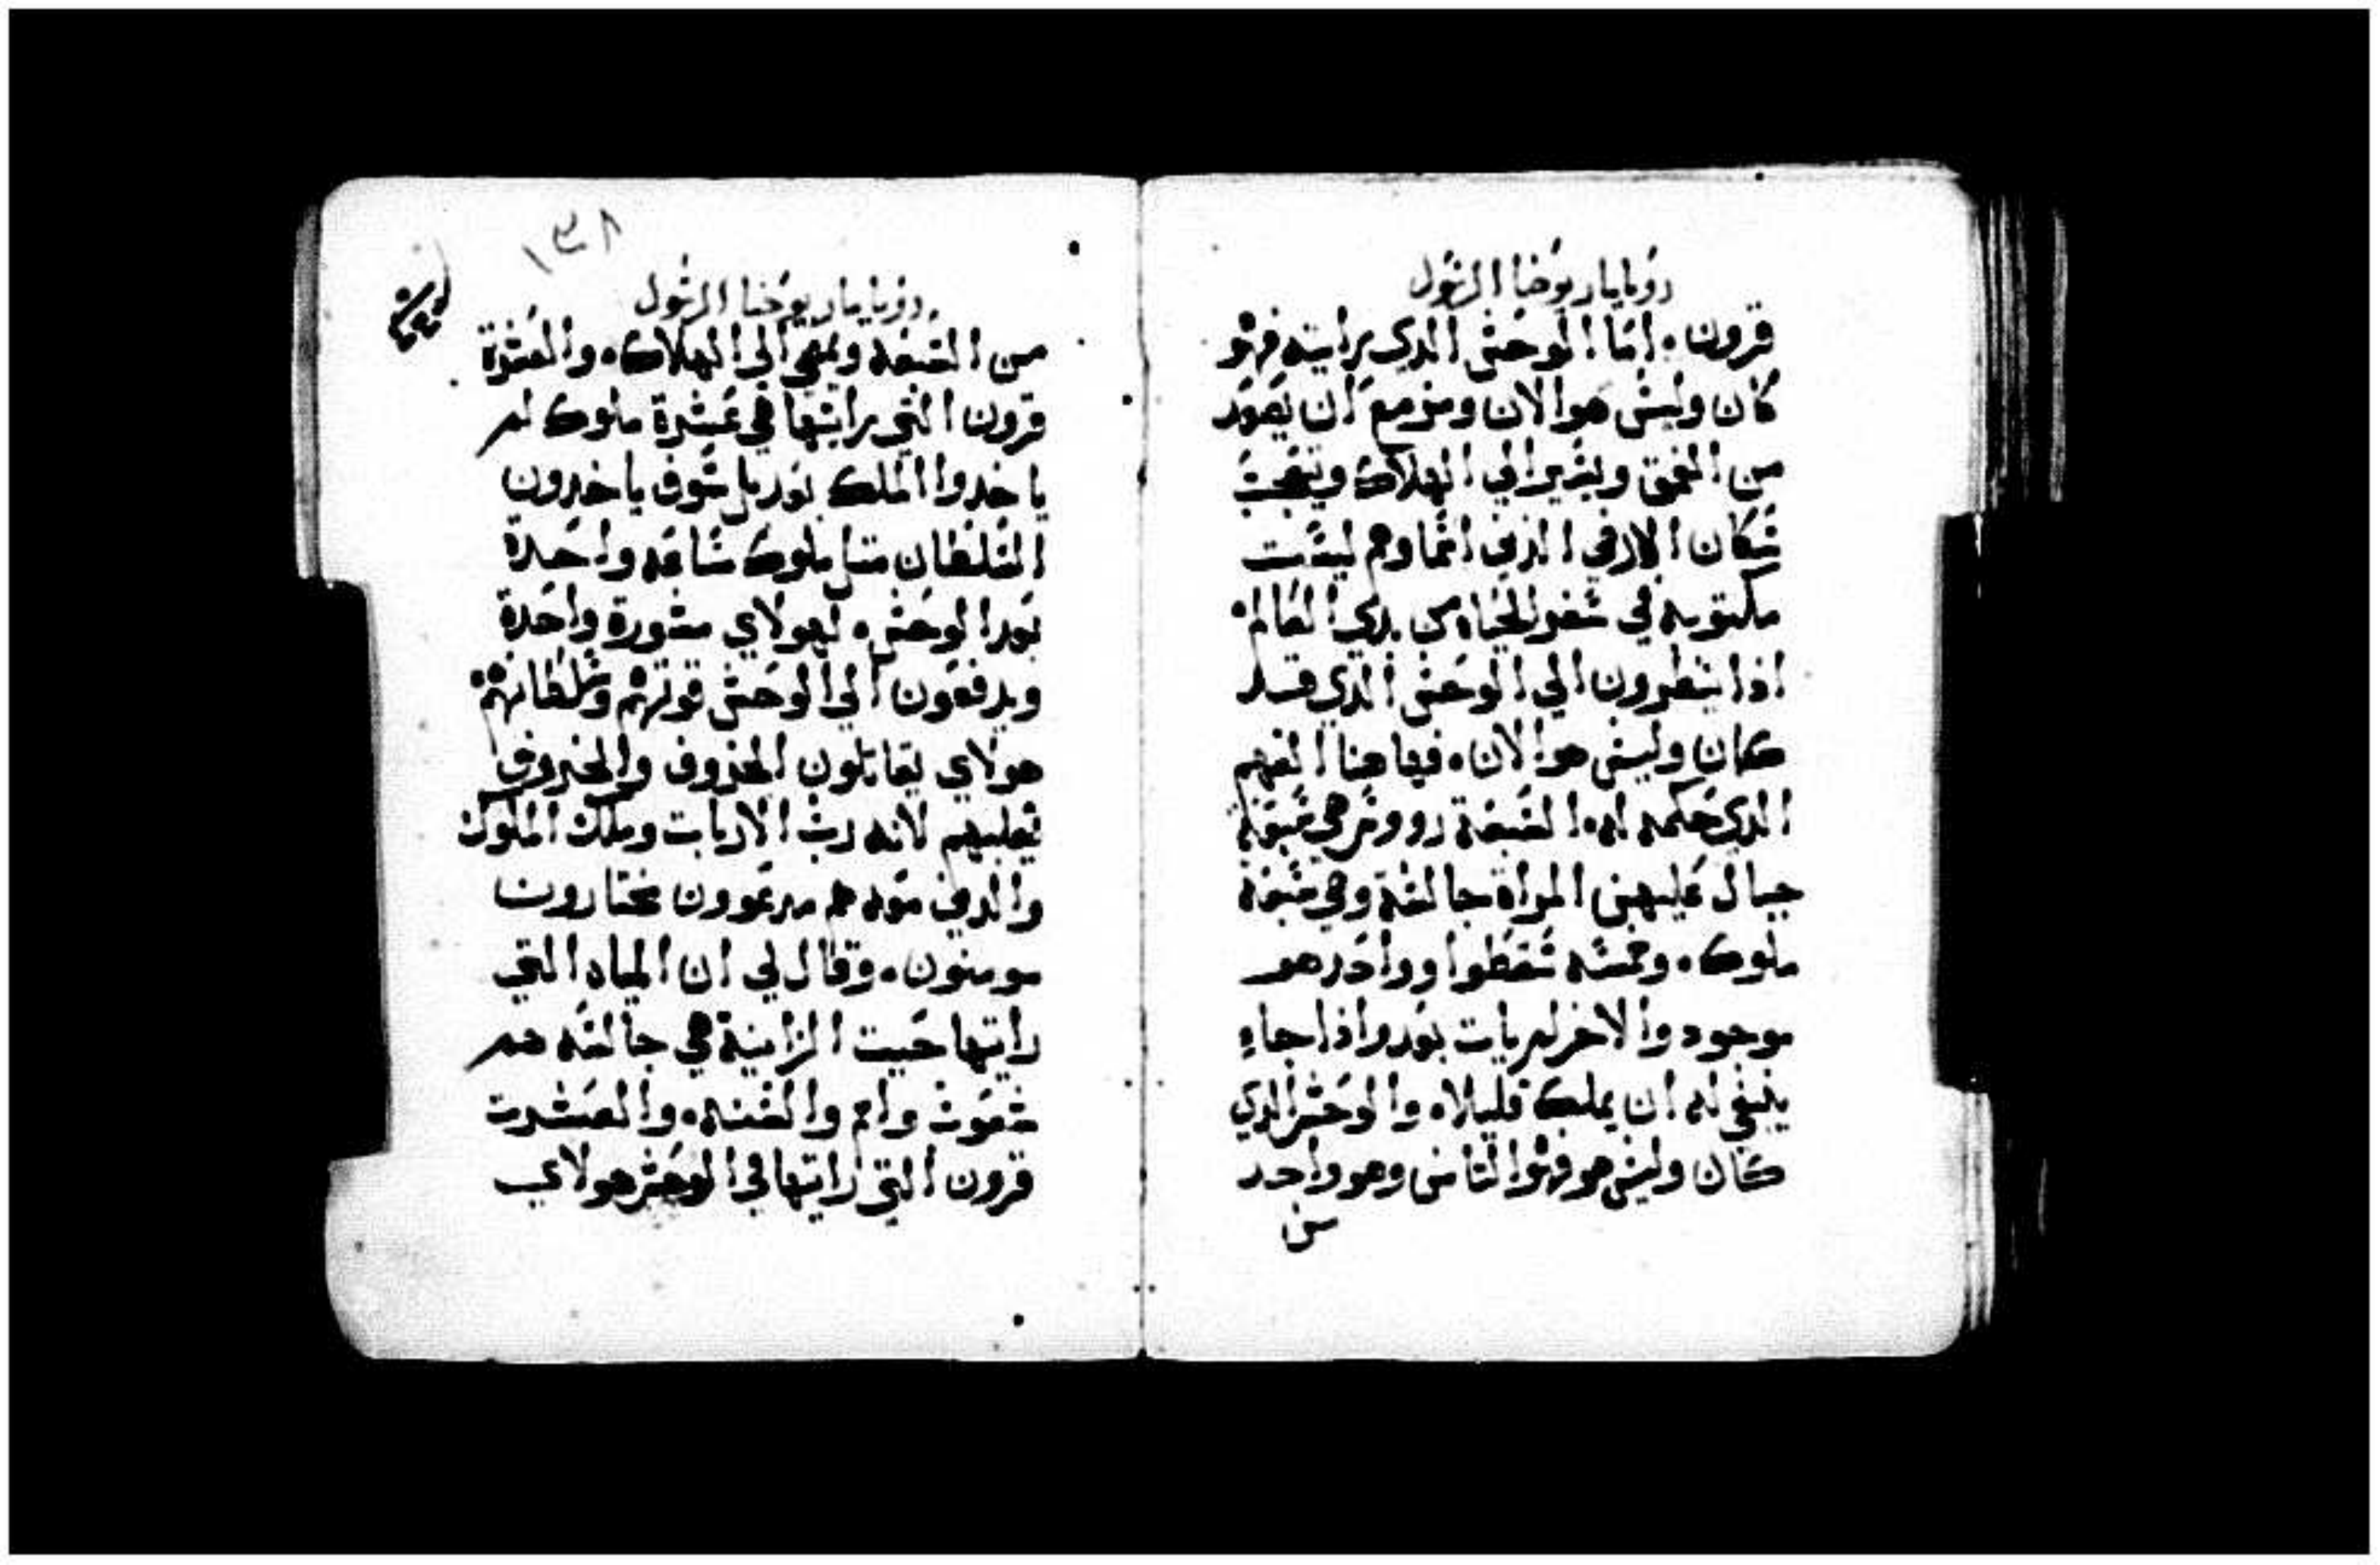 رويا مار يوحنا الرسول
قرون. اما الوحش الدي رايته فهو
كان وليس هو الان ومزمع ان يصعد
من العمق ويسير الي الهلاك ويتعجب
سكان الارض الذين اسماوهم ليست
مكتوبه في سفر الحياه من بدي العالم.
اذا ينظرون الي الوحش الدي قد
كان وليس هو الان. فهاهنا الفهم
الدي حكمه له. السبعة رووس هي سبعة
جبال عليهن المراة جالسة وهي سبعة
ملوك. وخمسه سقطوا وواحد هو
موجود والاخر لم يات بعد واذا جاء
ينبغي له ان يملك قليلا. والوحش الدي
كان وليس هو فهو التامن وهو واحد
من
١٣٨
رويا مار يوحنا الرسول
من السبعه ويمضي الي الهلاك. والعشرة
قرون التي رايتها هي عشرة ملوك لم
ياخدوا الملك بعد بل سوف ياخدون
السلطان متل ملوك ساعه واحدة
بعد الوحش. لهولاي مشورة واحدة
ويدفعون الي الوحش قوتهم وسلطانهم.
هولاي يقاتلون الخروف والخروف
يغلبهم لانه رب الارباب وملك الملوك
والدين معه هم مدعوون مختارون
مومنون. وقال لي ان المياه التي
رايتها حيت الزانية هي جالسه هم
شعوب وامم والسنه. والعشرت
قرون التي رايتها في الوحش هولاي